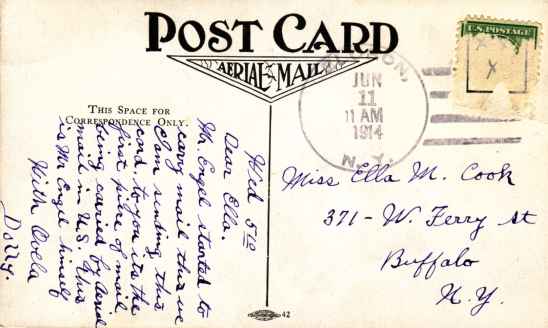 POST CARD
AERIAL MAIL
U.S. POSTAGE
THIS SPACE FOR
CORRESPONDENCE ONLY.
JUN
11
11 AM
1914
N.Y.
Wed
Dear Ella.
Mr. Engel started to
carry mail this
I am sending this
card, to you its the
first piece of mail
being caried by aerial
mail in U.S. this
is Mr Engel himself
With
Dolly.
Miss Ella M. Cook
371 - W. Ferry St
Buffalo
N.Y.
42